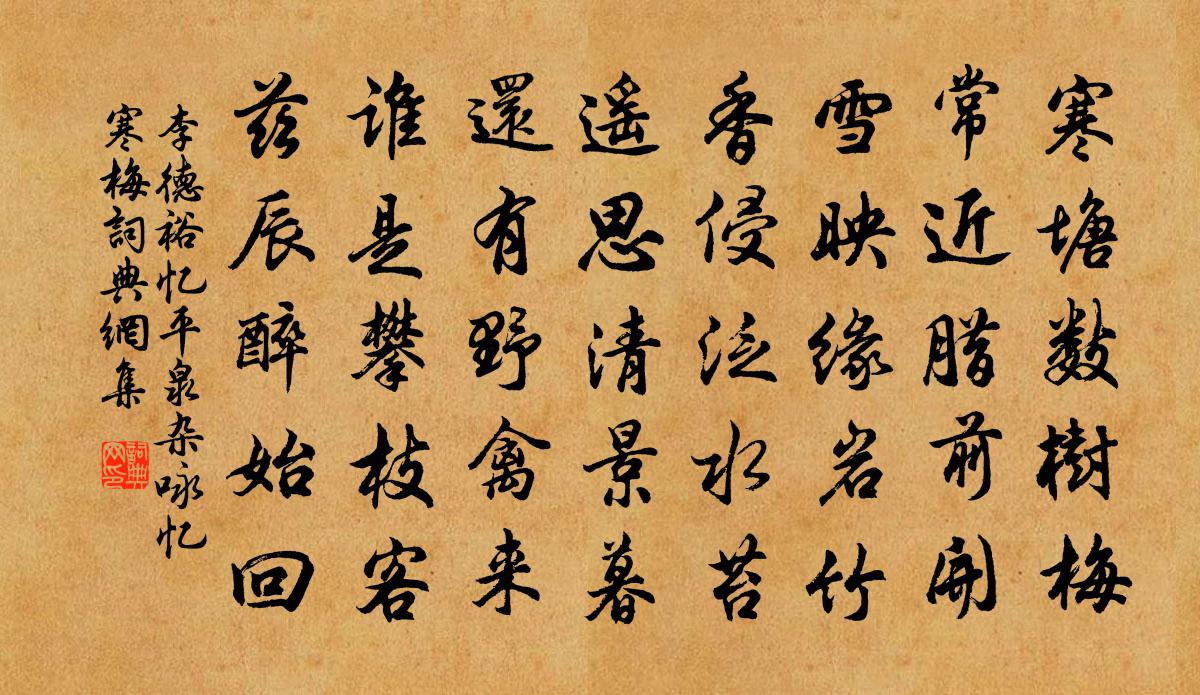 寒塘数樹梅
常近腊前開
雪映缘岩竹
香侵泛水苔
遥思清景暮
還有野禽来
谁是攀枝客
兹辰醉始回
李德裕忆平泉杂咏忆
寒梅詞典網集
詞典
网印